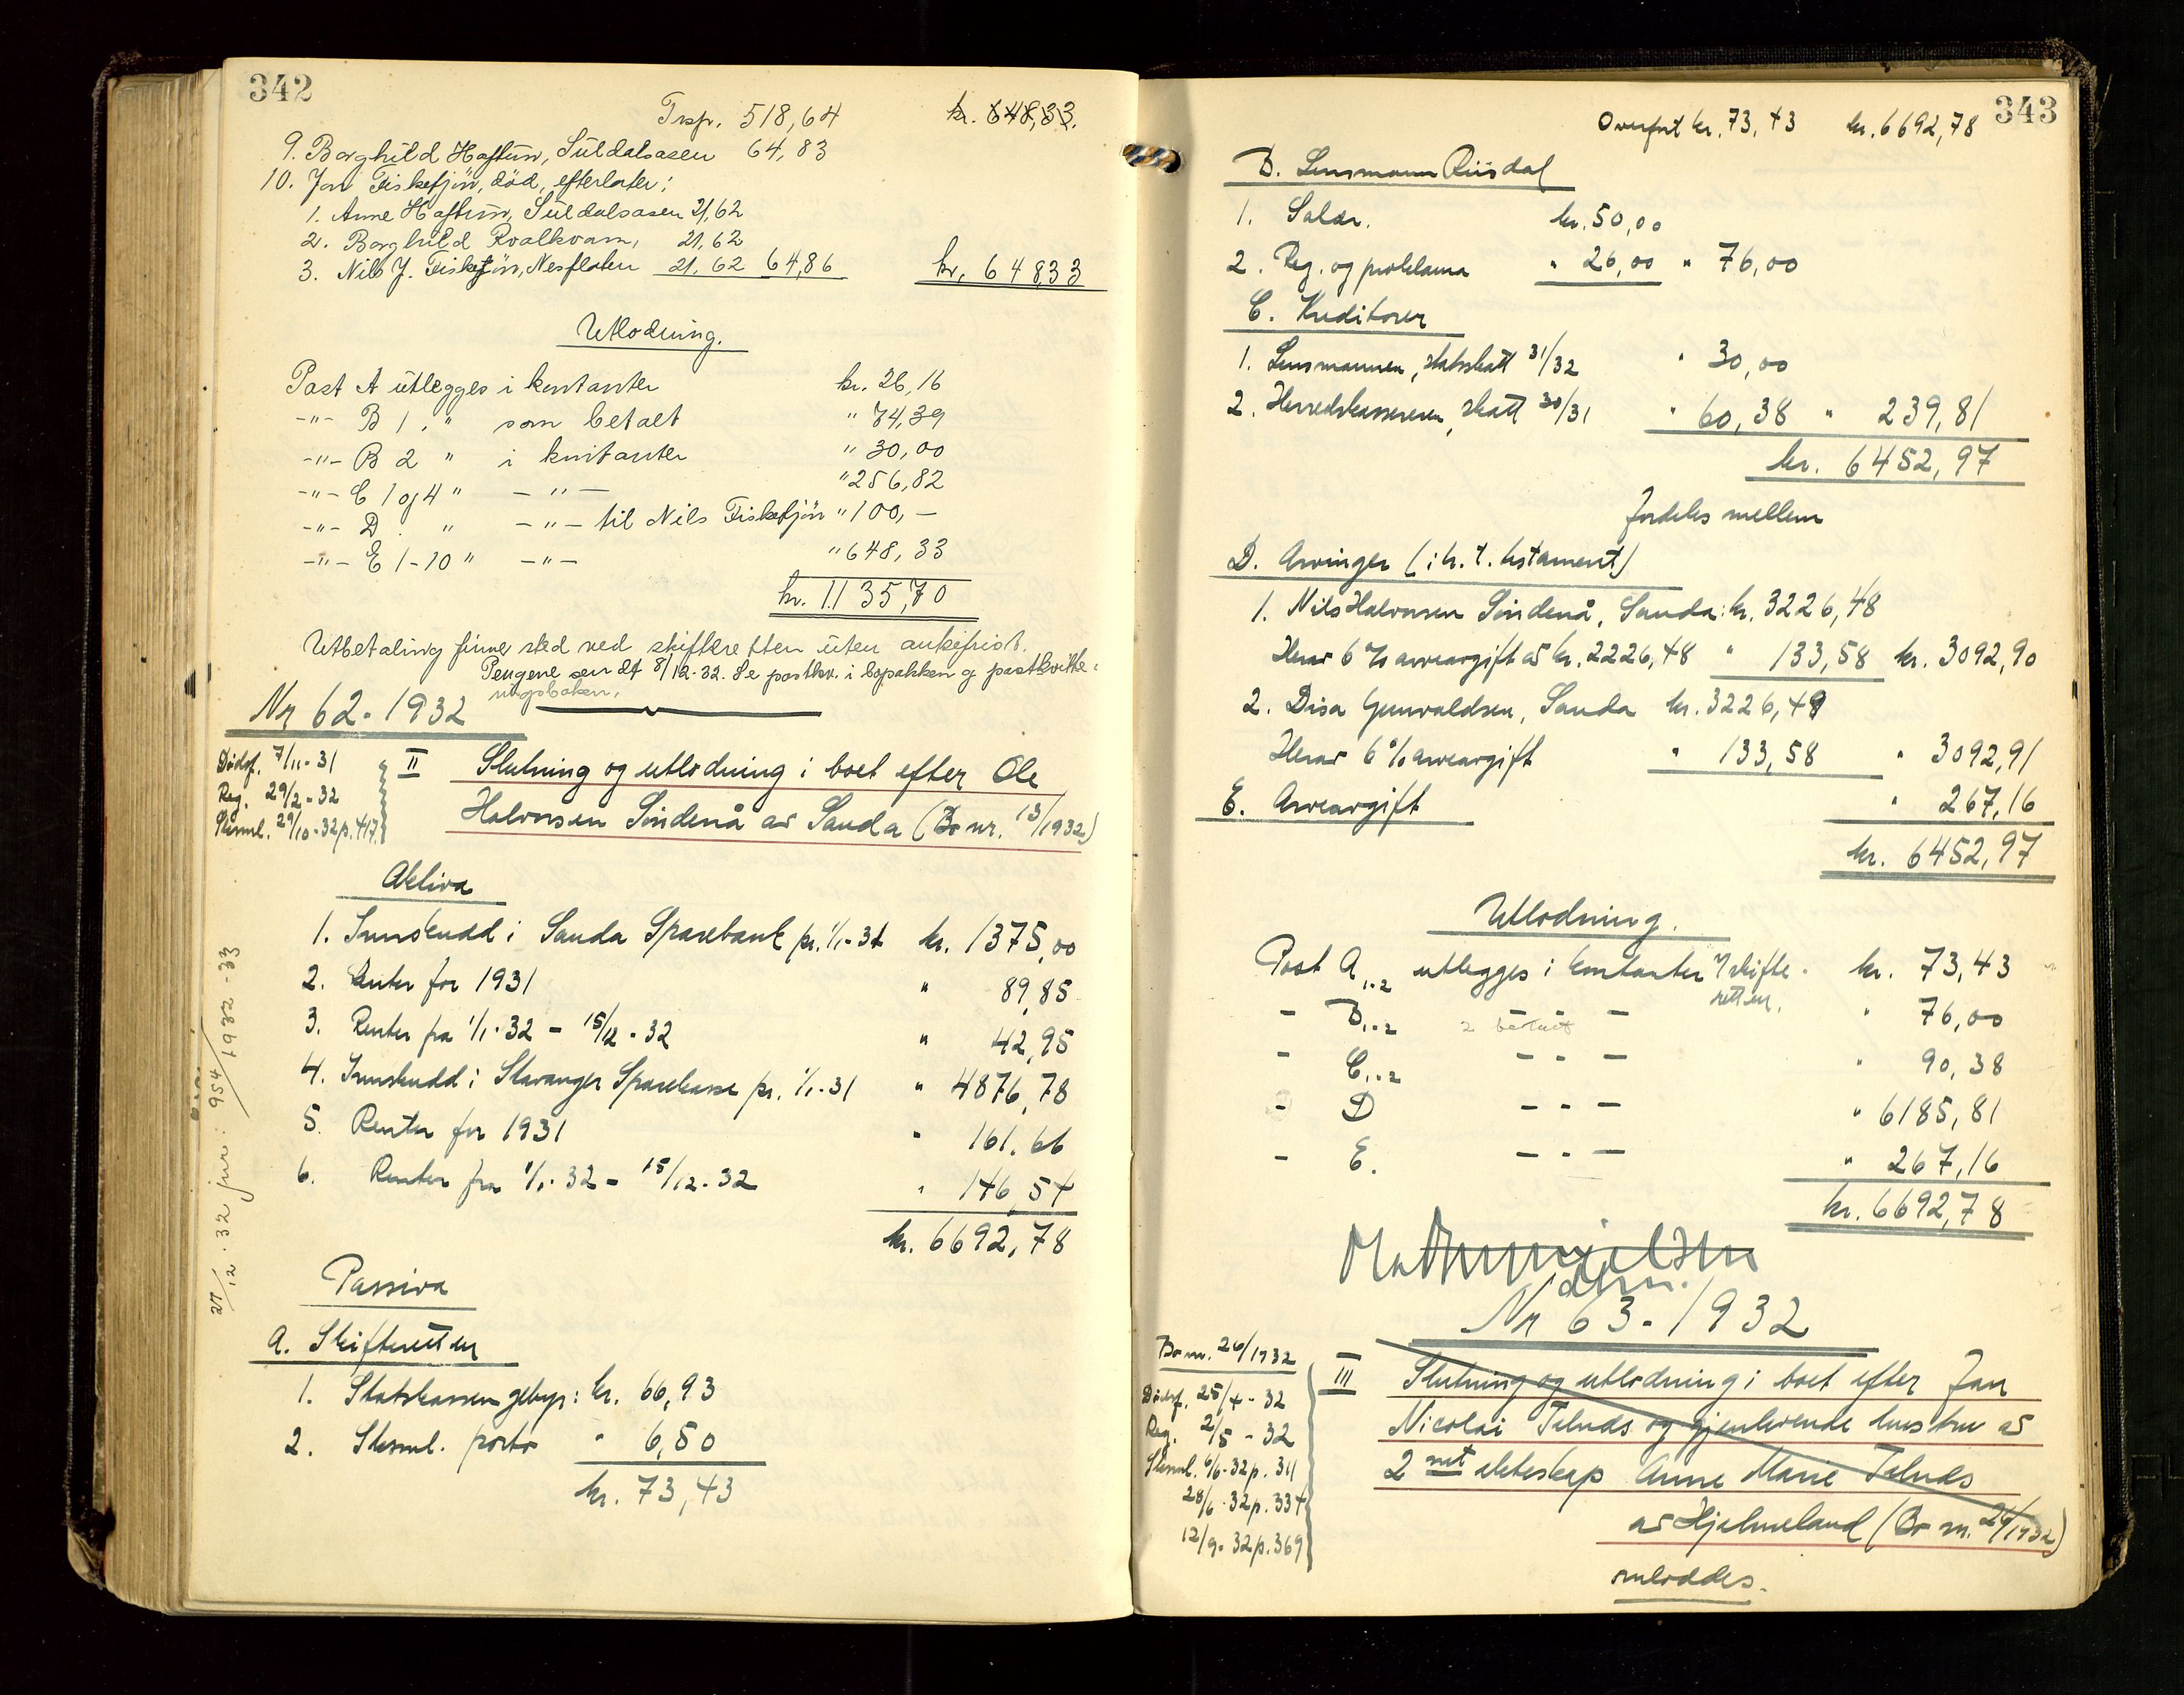 342
Trsp. 518,64 kr. 648,33.
9. Borghild Haftun, Suldalsosen 64,83
10. Jon Fiskefjön, död, efterlater:
1. Anne Haftun, Suldalsosen 21,62
2. Borghild Kvalkvam, 21,62
3. Nils J. Fiskefjön, Nesflaten 21,62 64,86 kr. 648,33
Utlodning.
Post A utlegges i kontanter kr. 26,16
-"- B 1. " som betalt " 74,39
-"- B 2 " i kontanter " 30,00
-"- C 1 og 4 " - " - " 256,82
-"- D. " - " - til Nils Fiskefjön " 100,-
-"- E 1-10 " - " - " 648,33
kr. 1135,70
Utbetaling finner sted ved skifteretten uten ankefrist.
Pengene sendt 8/12-32. Se postkv. i bopakken og postkvitte-
ringsboken.
Nr 62 - 1932
Dödsf. 7/11-31
Reg. 29/2-32
Sksml. 29/10-32 p. 417.
II Slutning og utlodning i boet efter Ole
Halvorsen Söndenå av Sauda (Bo nr. 13/1932)
Aktiva
1. Innskudd i Sauda Sparebank pr. 1/1-31 kr. 1375,00
2. Renter for 1931 " 89,85
3. Renter fra 1/1-32 - 15/12-32 " 42,95
4. Innskudd i Stavanger Sparekasse pr. 1/1-31 " 4876,78
5. Renter for 1931 " 161,66
6. Renter fra 1/1-32 - 15/12-32 " 146,54
kr. 6692,78
27/12-32 jnr: 954/1932-33
Passiva
A. Skifteretten
1. Statskassen gebyr: kr. 66,93
2. Sksml. porto " 6,50
kr. 73,43
343
Overfört kr. 73,43 kr. 6692,78
B. Lensmann Riisdal
1. Salær. kr. 50,00
2. Reg. og proklama " 26,00 " 76,00
C. Kreditorer
1. Lensmannen, statsskatt 31/32 " 30,00
2. Herredskassereren, skatt 30/31 " 60,38 " 239,81
kr. 6452,97
fordeles mellem
D. Arvinger (i h. t. testament)
1. Nils Halvorsen Söndenå, Sauda: kr. 3226,48
Herav 6 % arveavgift av kr. 2226,48 " 133,58 kr. 3092,90
2. Disa Gunvaldsen, Sauda kr. 3226,49
Herav 6 % arveavgift " 133,58 " 3092,91
E. Arveavgift " 267,16
kr. 6452,97
Utlodning.
Post A 1-2 utlegges i kontanter v/ skifte- kr. 73,43
retten.
- B 1-2 2 betalt - - - " 76,00
- C 1-2 - - - " 90,38
- D - - - " 6185,81
- E. - - - " 267,16
kr. 6692,78
Nr 63 - 1932
Bo nr. 26/1932
Dödsf. 25/4-32
Reg. 2/5-32
Sksml. 6/6-32 p. 311
28/6-32 p. 334
12/9-32 p. 369
III Slutning og utlodning i boet efter Jan
Nicolai Tednds og gjenlevende hustru av
2 net ekteskap Anne Marie Tednds
av Hjelmeland (Bo nr. 26/1932)
omloddes.